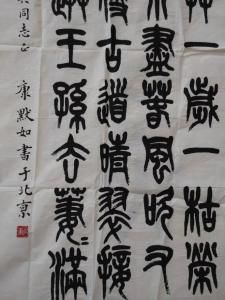 草一歲一枯榮
不盡春風吹又
侵古道晴翠接
送王孫去萋〻滿
同志正
康默如書于北京